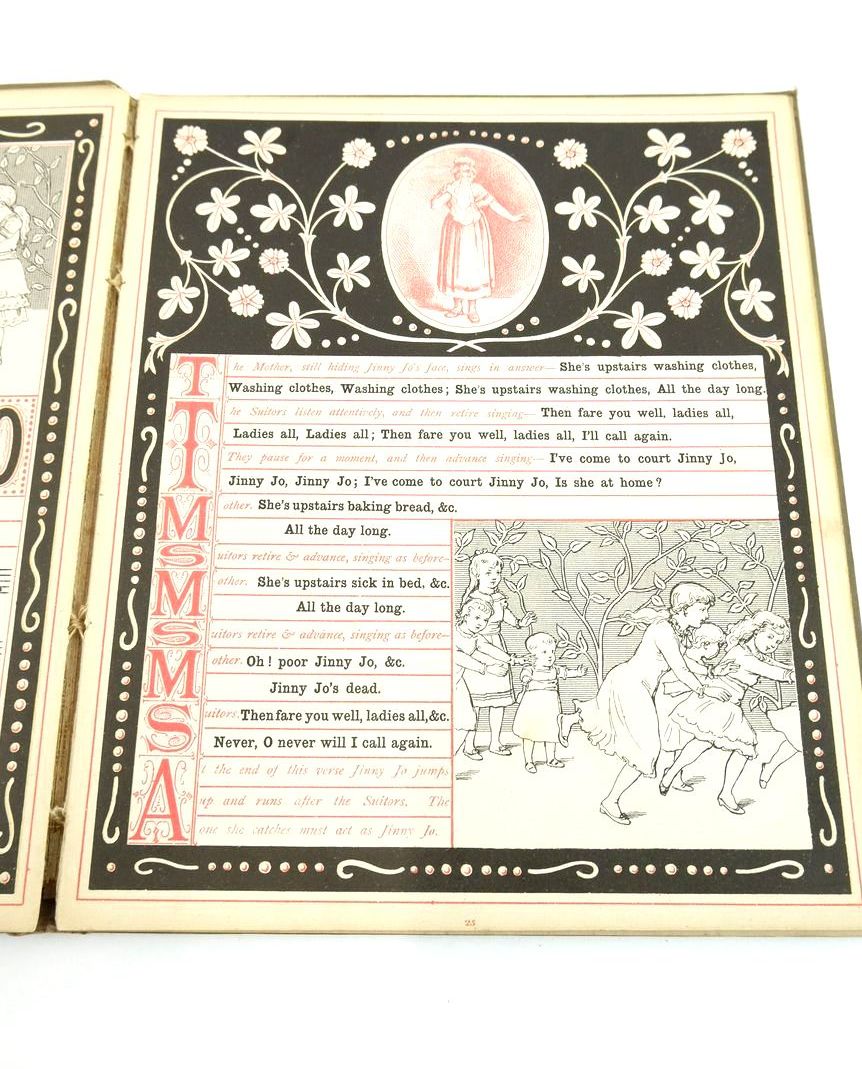 O
The Mother, still hiding Jinny Jo's face, sings in answer— She's upstairs washing clothes,
Washing clothes, Washing clothes; She's upstairs washing clothes, All the day long.
The Suitors listen attentively, and then retire singing— Then fare you well, ladies all,
Ladies all, Ladies all; Then fare you well, ladies all, I'll call again.
They pause for a moment, and then advance singing— I've come to court Jinny Jo,
Jinny Jo, Jinny Jo; I've come to court Jinny Jo, Is she at home?
Mother. She's upstairs baking bread, &c.
All the day long.
Suitors retire & advance, singing as before—
Mother. She's upstairs sick in bed, &c.
All the day long.
Suitors retire & advance, singing as before—
Mother. Oh! poor Jinny Jo, &c.
Jinny Jo's dead.
Suitors. Then fare you well, ladies all, &c.
Never, O never will I call again.
At the end of this verse Jinny Jo jumps
up and runs after the Suitors. The
one she catches must act as Jinny Jo.
25